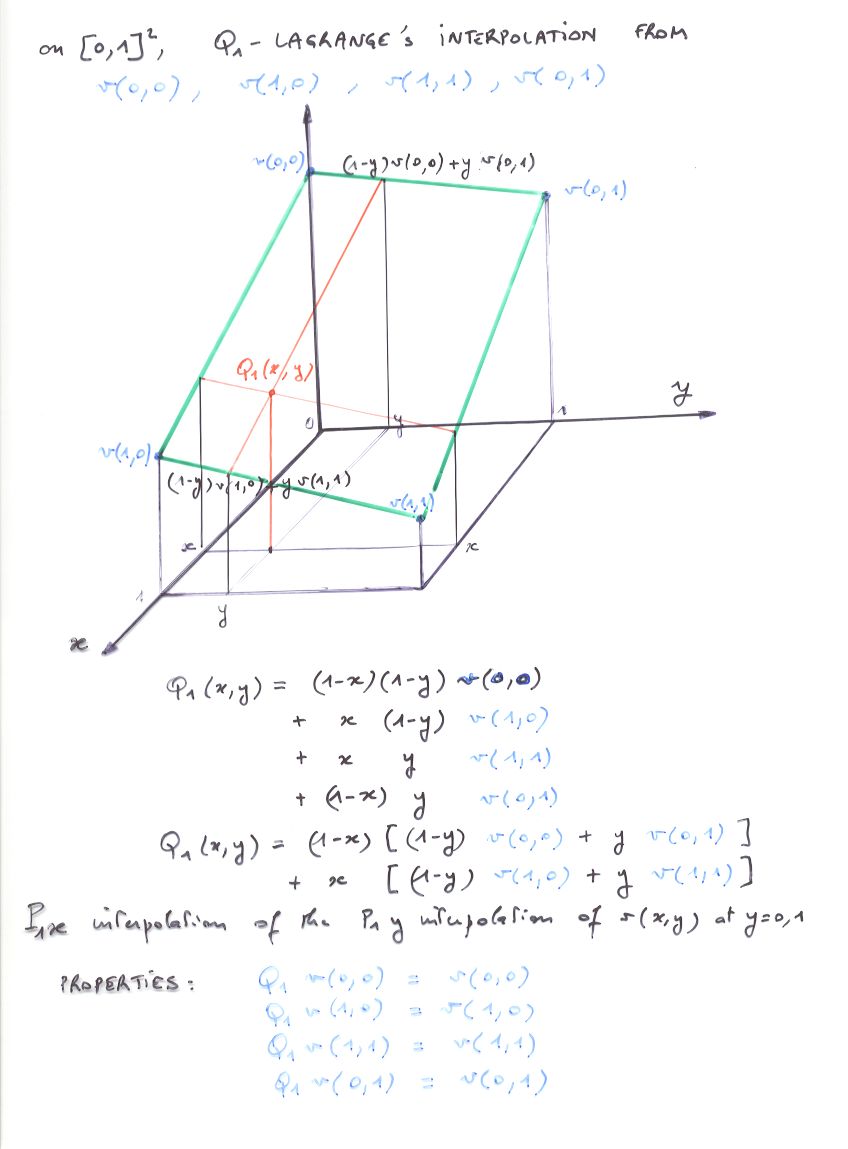 on [0,1]², Q₁ - LAGRANGE's INTERPOLATION FROM
v(0,0), v(1,0), v(1,1), v(0,1)
v(0,0) (1-y)v(0,0)+y v(0,1)
v(0,1)
Q₁(x,y)
y
0 y 1
v(1,0)
(1-y)v(1,0)+y v(1,1)
v(1,1)
x x
1
y
x
Q₁(x,y) = (1-x)(1-y) v(0,0)
+ x (1-y) v(1,0)
+ x y v(1,1)
+ (1-x) y v(0,1)
Q₁(x,y) = (1-x) [(1-y) v(0,0) + y v(0,1)]
+ x [(1-y) v(1,0) + y v(1,1)]
P₁x interpolation of the P₁y interpolation of v(x,y) at y=0,1
PROPERTIES: Q₁ v(0,0) = v(0,0)
Q₁ v(1,0) = v(1,0)
Q₁ v(1,1) = v(1,1)
Q₁ v(0,1) = v(0,1)